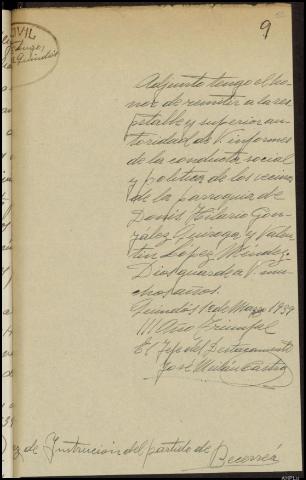 9
CIVIL
Adjunto tengo el ho-
nor de remitir a la res
petable y superior au-
toridad de V. informes
de la conducta social
y politica de los vecinos
de la parroquia de
Donís Hilario Gon-
zález Quiroga y Valen-
tin López Méndez.
Dios guarde a V. mu-
chos años.
Quindós 12 de Marzo 1939
III Año Triunfal
El Jefe del Destacamento
José
de Instrucion del partido de
Becerreá
AHPLu